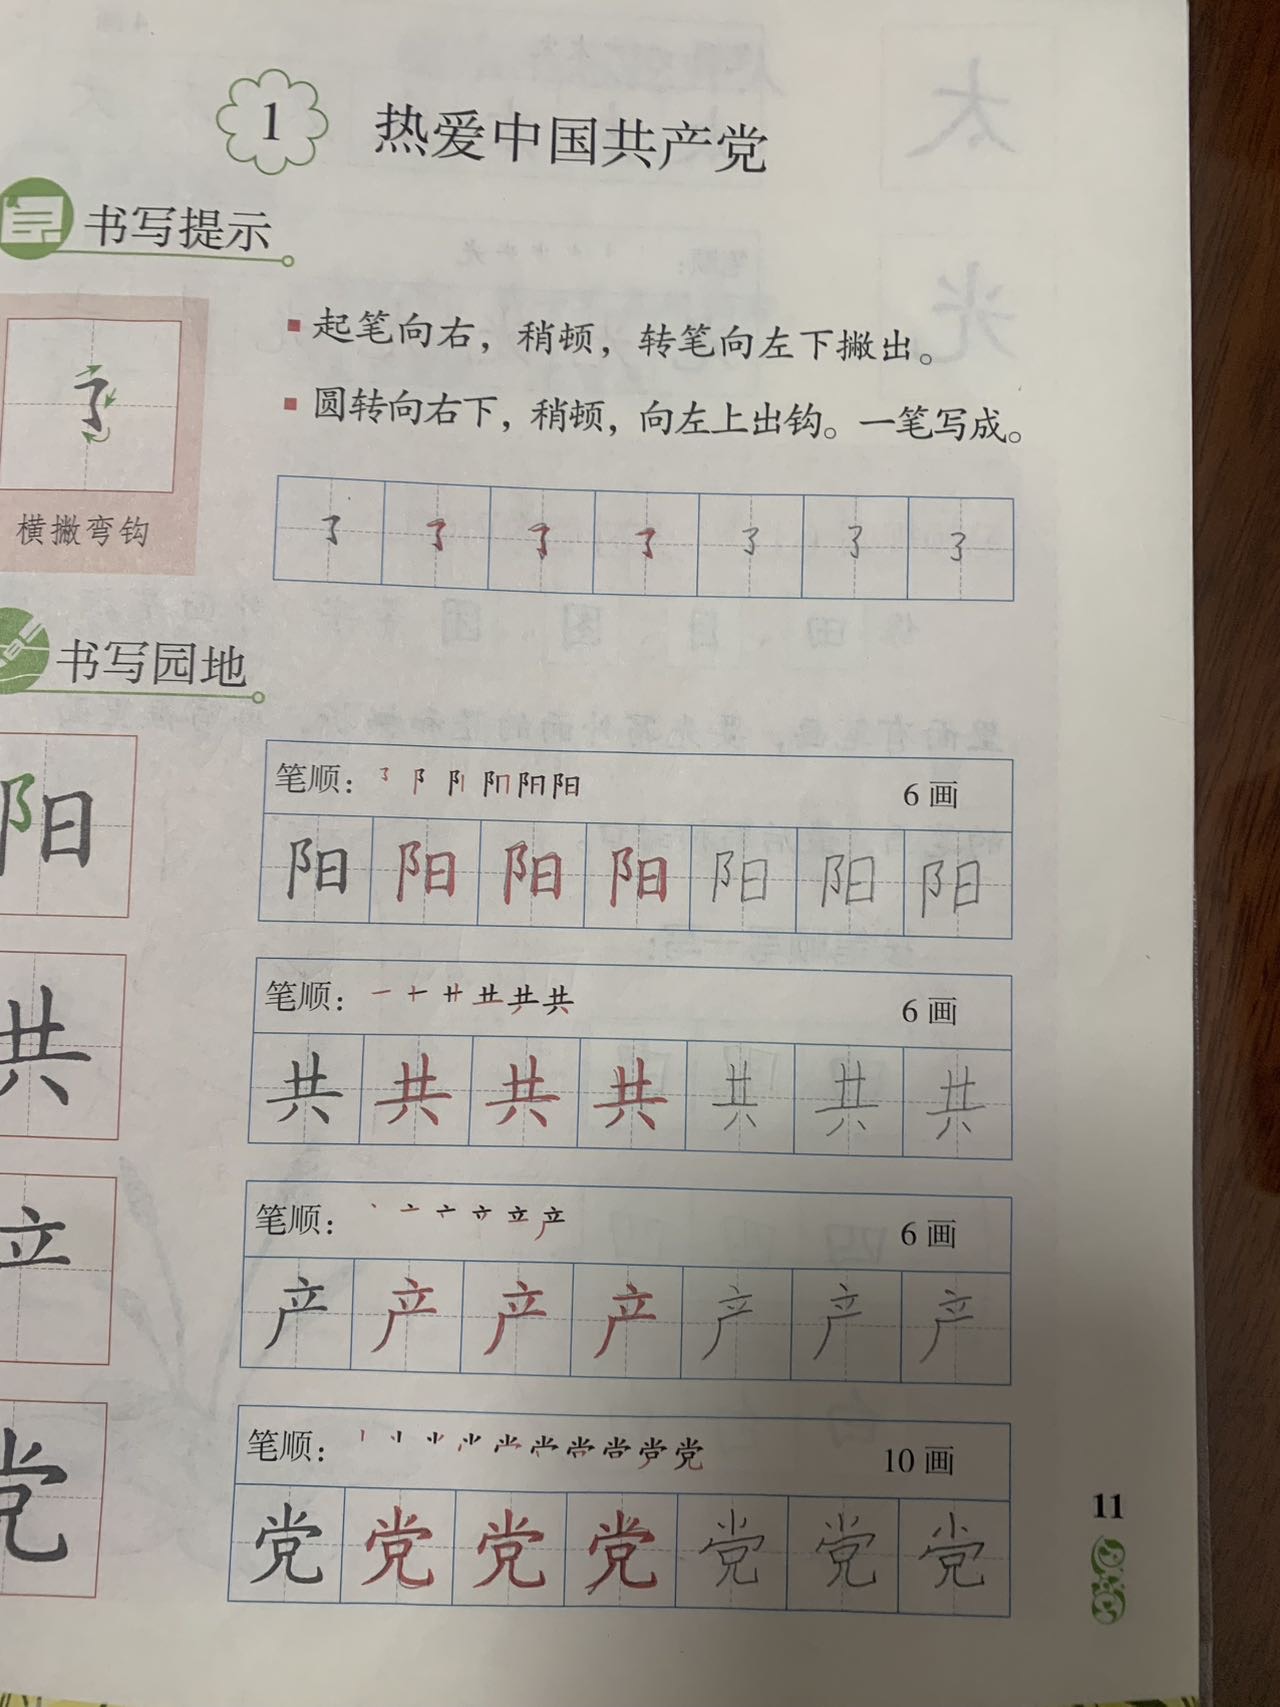 1 热爱中国共产党
书写提示
起笔向右，稍顿，转笔向左下撇出。
圆转向右下，稍顿，向左上出钩。一笔写成。
横撇弯钩
书写园地
阳
笔顺： 阳 6画
阳 阳 阳 阳 阳 阳 阳
共
笔顺： 一 十 廾 共 6画
共 共 共 共 共 共 共
产
笔顺： 丶 亠 立 产 6画
产 产 产 产 产 产 产
党
笔顺： 党 10画
党 党 党 党 党 党 党
11